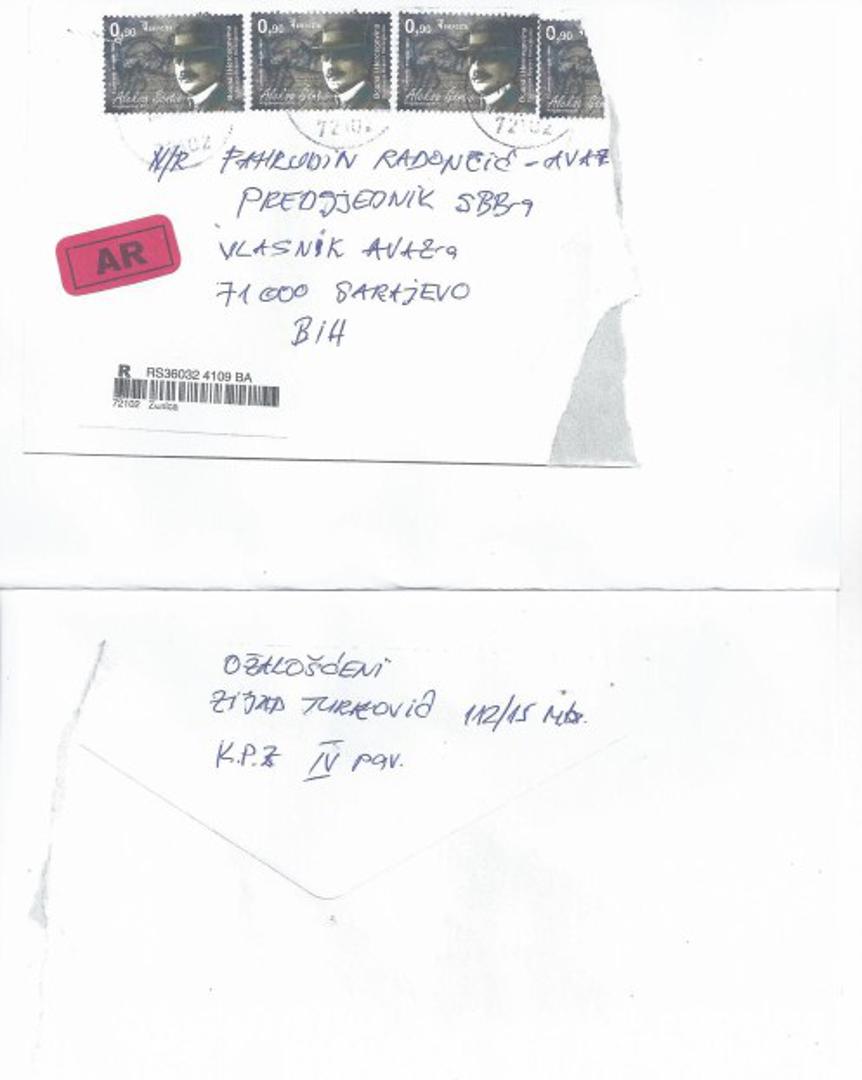 0,90 0,90 0,90 0,90
Aleksa Šantić Aleksa Šantić Aleksa Šantić Aleksa Šantić
Bosna i Hercegovina Bosna i Hercegovina Bosna i Hercegovina
72102 72102 72102
N/R FAHRUDIN RADONČIĆ - AVAZ
PREDSJEDNIK SBB-a
VLASNIK AVAZ-a
71000 SARAJEVO
BiH
AR
R RS36032 4109 BA
72102 Zenica
OŽALOŠĆENI
ZIJAD TURKOVIĆ 112/15 Mbr.
K.P.Z IV pav.